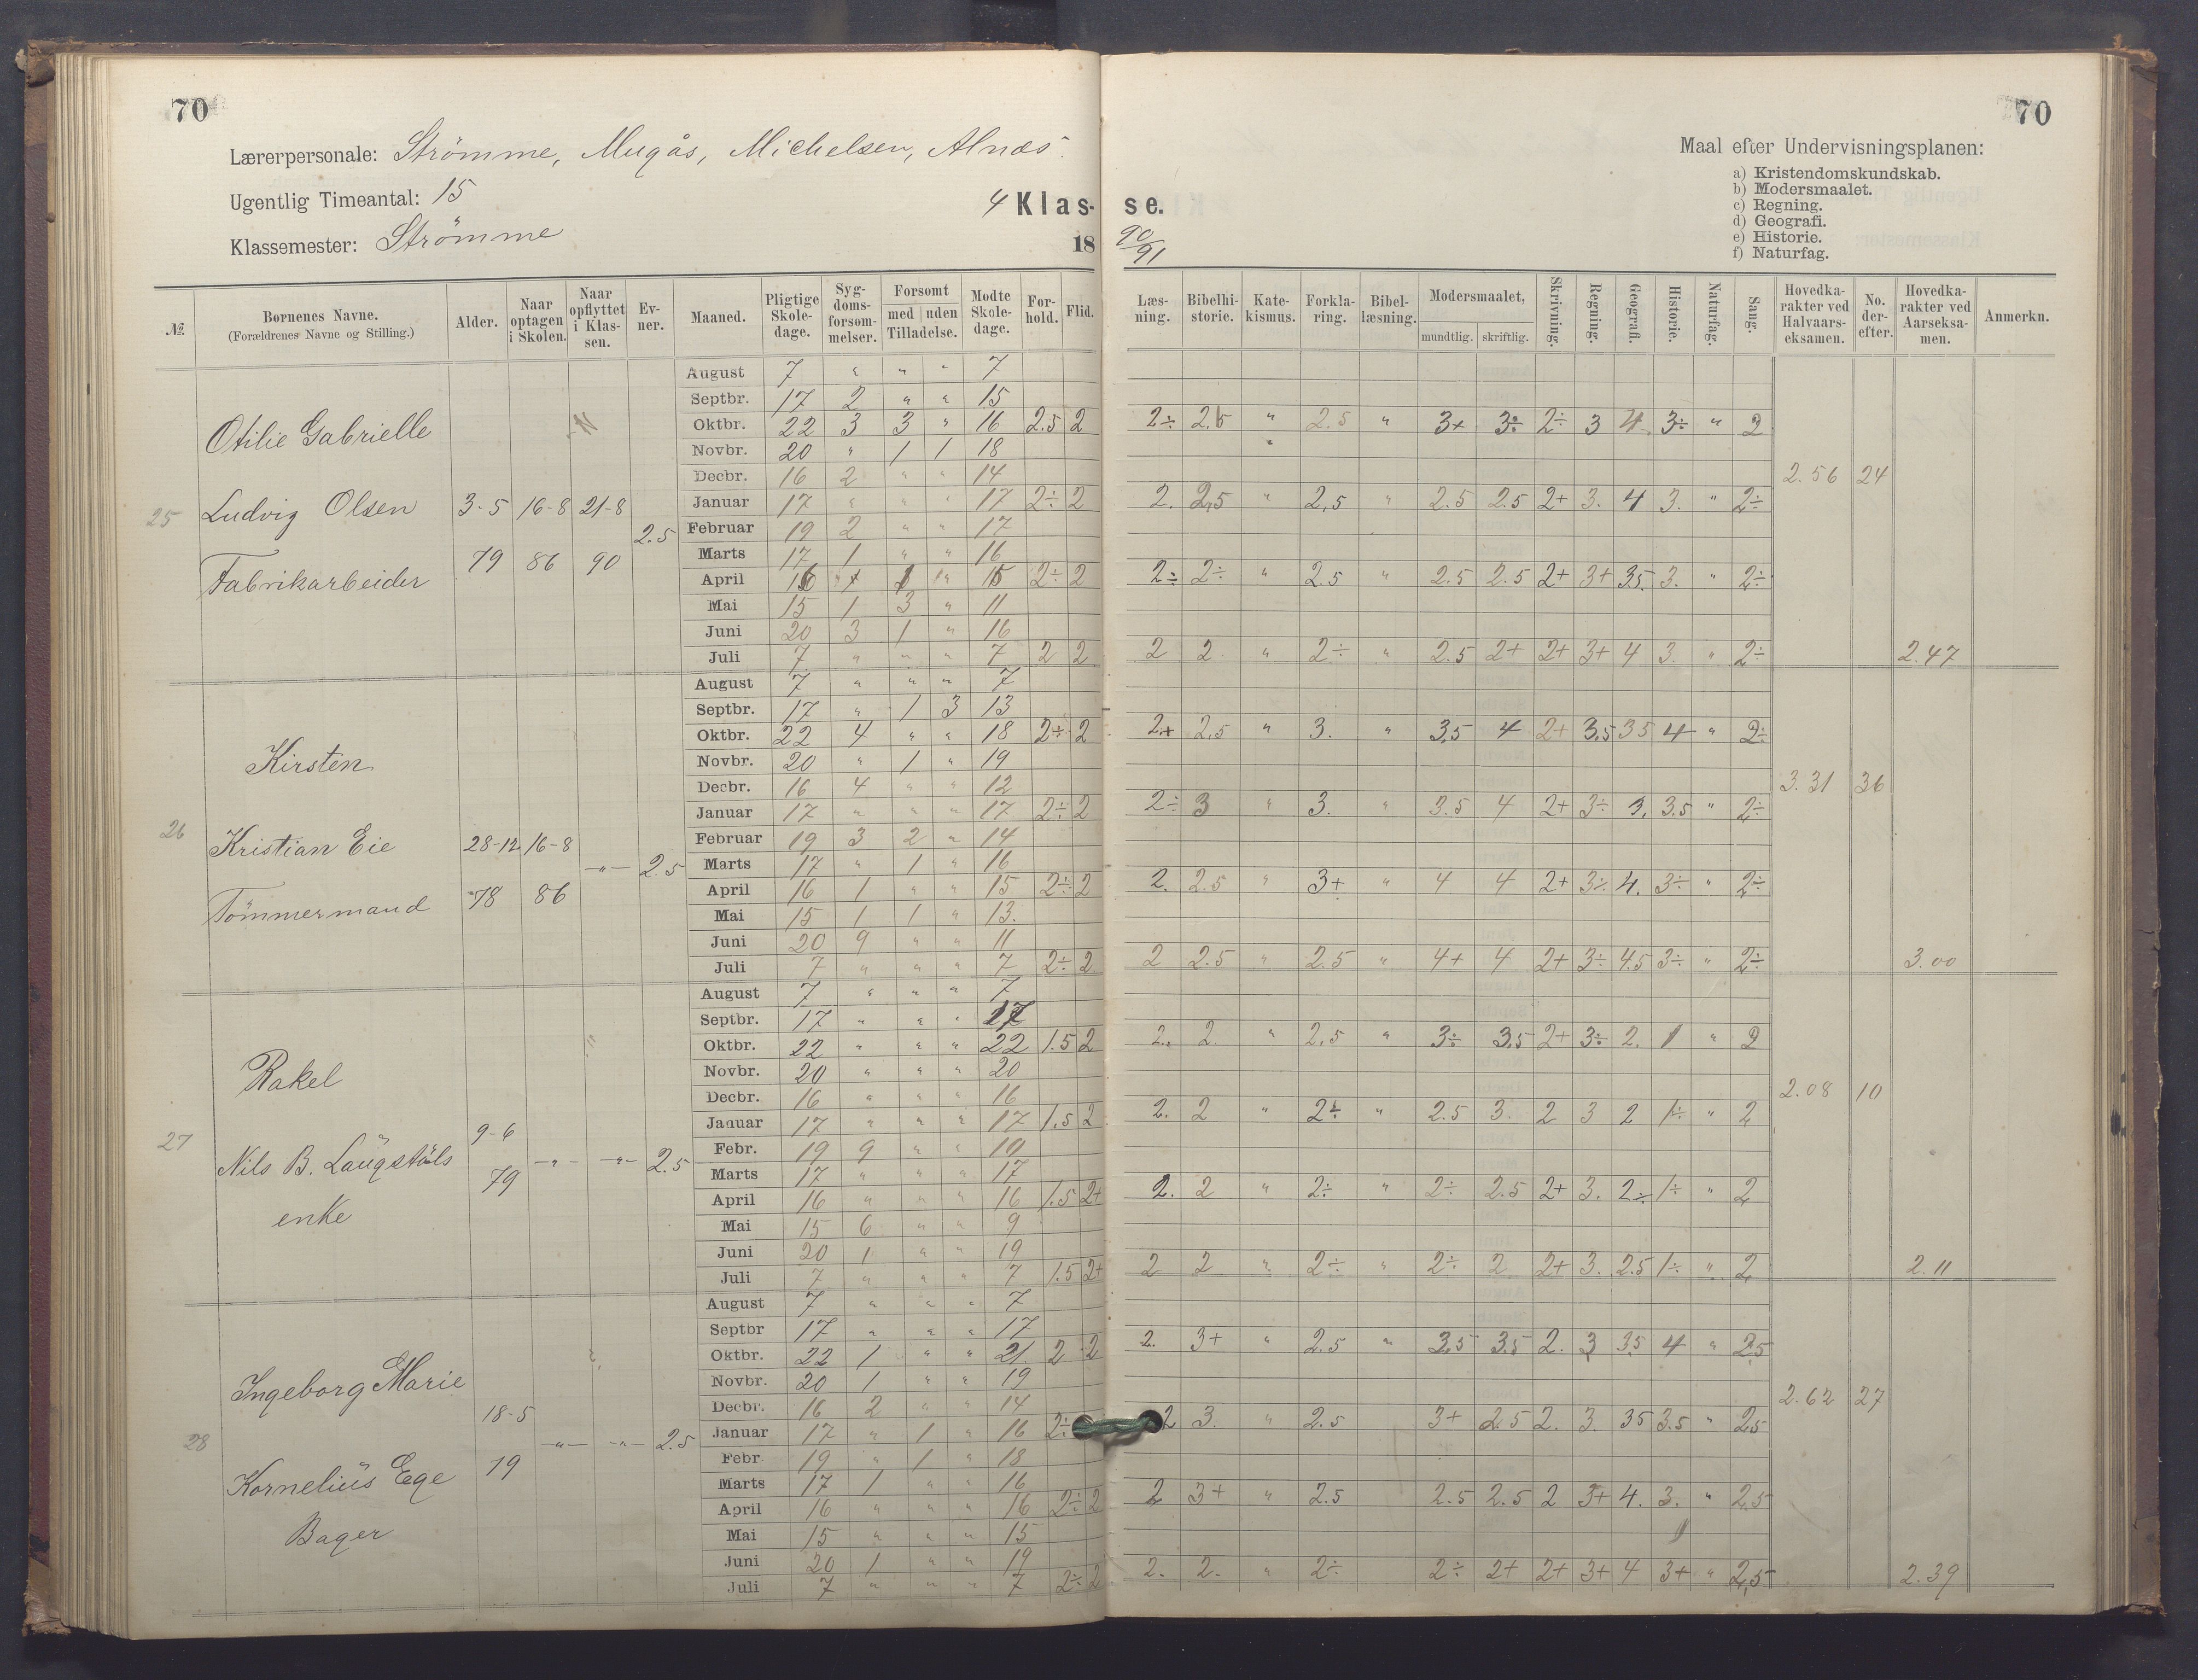 70
70
Lærerpersonale: Strömme, Mugås, Michelsen, Alnæs.
Ugentlig Timeantal: 15
Klassemester: Strömme
4 Klasse.
18 90/91
Maal efter Undervisningsplanen:
a) Kristendomskundskab.
b) Modersmaalet.
c) Regning.
d) Geografi.
e) Historie.
f) Naturfag.
№ | Børnenes Navne. (Forældrenes Navne og Stilling.) | Alder. | Naar optagen i Skolen. | Naar opflyttet i Klassen. | Evner. | Maaned. | Pligtige Skoledage. | Sygdomsforsømmelser. | Forsømt med uden Tilladelse. | Mødte Skoledage. | Forhold. | Flid. | Læsning. | Bibelhistorie. | Katekismus. | Forklaring. | Bibellæsning. | Modersmaalet, mundtlig. skriftlig. | Skrivning. | Regning. | Geografi. | Historie. | Naturfag. | Sang. | Hovedkarakter ved Halvaarseksamen. | No. derefter. | Hovedkarakter ved Aarseksamen. | Anmerkn.
25 Otilie Gabrielle
Ludvig Olsen
Fabrikarbeider
3-5 79 | 16-8 86 | 21-8 90 | 2.5
August 7 " " " 7
Septbr. 17 2 " " 15
Oktbr. 22 3 3 " 16 2.5 2 | 2÷ 2.5 " 2.5 " 3+ 3÷ 2÷ 3 4 3÷ " 2
Novbr. 20 " 1 1 18
Decbr. 16 2 " " 14 | 2.56 24
Januar 17 " " " 17 2÷ 2 | 2. 2,5 " 2,5 " 2.5 2.5 2+ 3. 4 3. " 2÷
Februar 19 2 " " 17
Marts 17 1 " " 16
April 16 " 1 " 15 2÷ 2 | 2÷ 2÷ " 2.5 " 2.5 2.5 2+ 3+ 35. 3. " 2÷
Mai 15 1 3 " 11
Juni 20 3 1 " 16
Juli 7 " " " 7 2 2 | 2 2 " 2÷ " 2.5 2+ 2+ 3+ 4 3. " 2÷ | 2.47
26 Kirsten
Kristian Eie
Tömmermand
28-12 78 | 16-8 86 | -"- | 2.5
August 7 " " " 7
Septbr. 17 " 1 3 13
Oktbr. 22 4 " " 18 2÷ 2 | 2+ 2,5 " 3. " 3,5 4 2+ 3,5 35 4 " 2÷
Novbr. 20 " 1 " 19
Decbr. 16 4 " " 12 | 3.31 36
Januar 17 " " " 17 2÷ 2 | 2÷ 3 " 3. " 3.5 4 2+ 3÷ 3. 3.5 " 2÷
Februar 19 3 2 " 14
Marts 17 " 1 " 16
April 16 1 " " 15 2÷ 2 | 2. 2.5 " 3+ " 4 4 2+ 3÷ 4. 3÷ " 2÷
Mai 15 1 1 " 13.
Juni 20 9 " " 11
Juli 7 " " " 7 2÷ 2 | 2 2.5 " 2.5 " 4+ 4 2+ 3÷ 4.5 3÷ " 2÷ | 3.00
27 Rakel
Nils B. Laugstöls
enke
9-6 79 | -"- | -"- | 2.5
August 7 " " " 7
Septbr. 17 " " " 17
Oktbr. 22 " " " 22 1.5 2 | 2. 2 " 2,5 " 3÷ 3,5 2+ 3÷ 2. 1 " 2
Novbr. 20 " " " 20
Decbr. 16 " " " 16 | 2.08 10
Januar 17 " " " 17 1.5 2 | 2. 2 " 2÷ " 2.5 3. 2 3 2 1÷ " 2
Febr. 19 9 " " 10
Marts 17 " " " 17
April 16 " " " 16 1.5 2+ | 2. 2 " 2÷ " 2÷ 2.5 2+ 3. 2÷ 1÷ " 2
Mai 15 6 " " 9
Juni 20 1 " " 19
Juli 7 " " " 7 1.5 2+ | 2 2 " 2÷ " 2÷ 2 2+ 3. 2.5 1÷ " 2 | 2.11
28 Ingeborg Marie
Kornelius Ege
Bager
18-5 79 | -"- | -"- | 2.5
August 7 " " " 7
Septbr 17 " " " 17
Oktbr. 22 1 " " 21. 2 2 | 2. 3+ " 2.5 " 3,5 3.5 2. 3 35 4 " 2,5
Novbr. 20 1 " " 19
Decbr. 16 2 " " 14 | 2.62 27
Januar 17 " 1 " 16 2÷ | 2 3. " 2.5 3+ 2.5 2. 3. 35 3.5 " 2,5
Febr 19 " 1 " 18
Marts 17 1 " " 16
April 16 " " " 16 2÷ 2 | 2 3+ " 2.5 2.5 2.5 2 3+ 4. 3. " 2,5
Mai 15 " " " 15
Juni 20 1 " " 19
Juli 7 " " " 7 2÷ 2 | 2. 2. " 2÷ 2÷ 2+ 2+ 3+ 4 3+ " 2,5 | 2.39